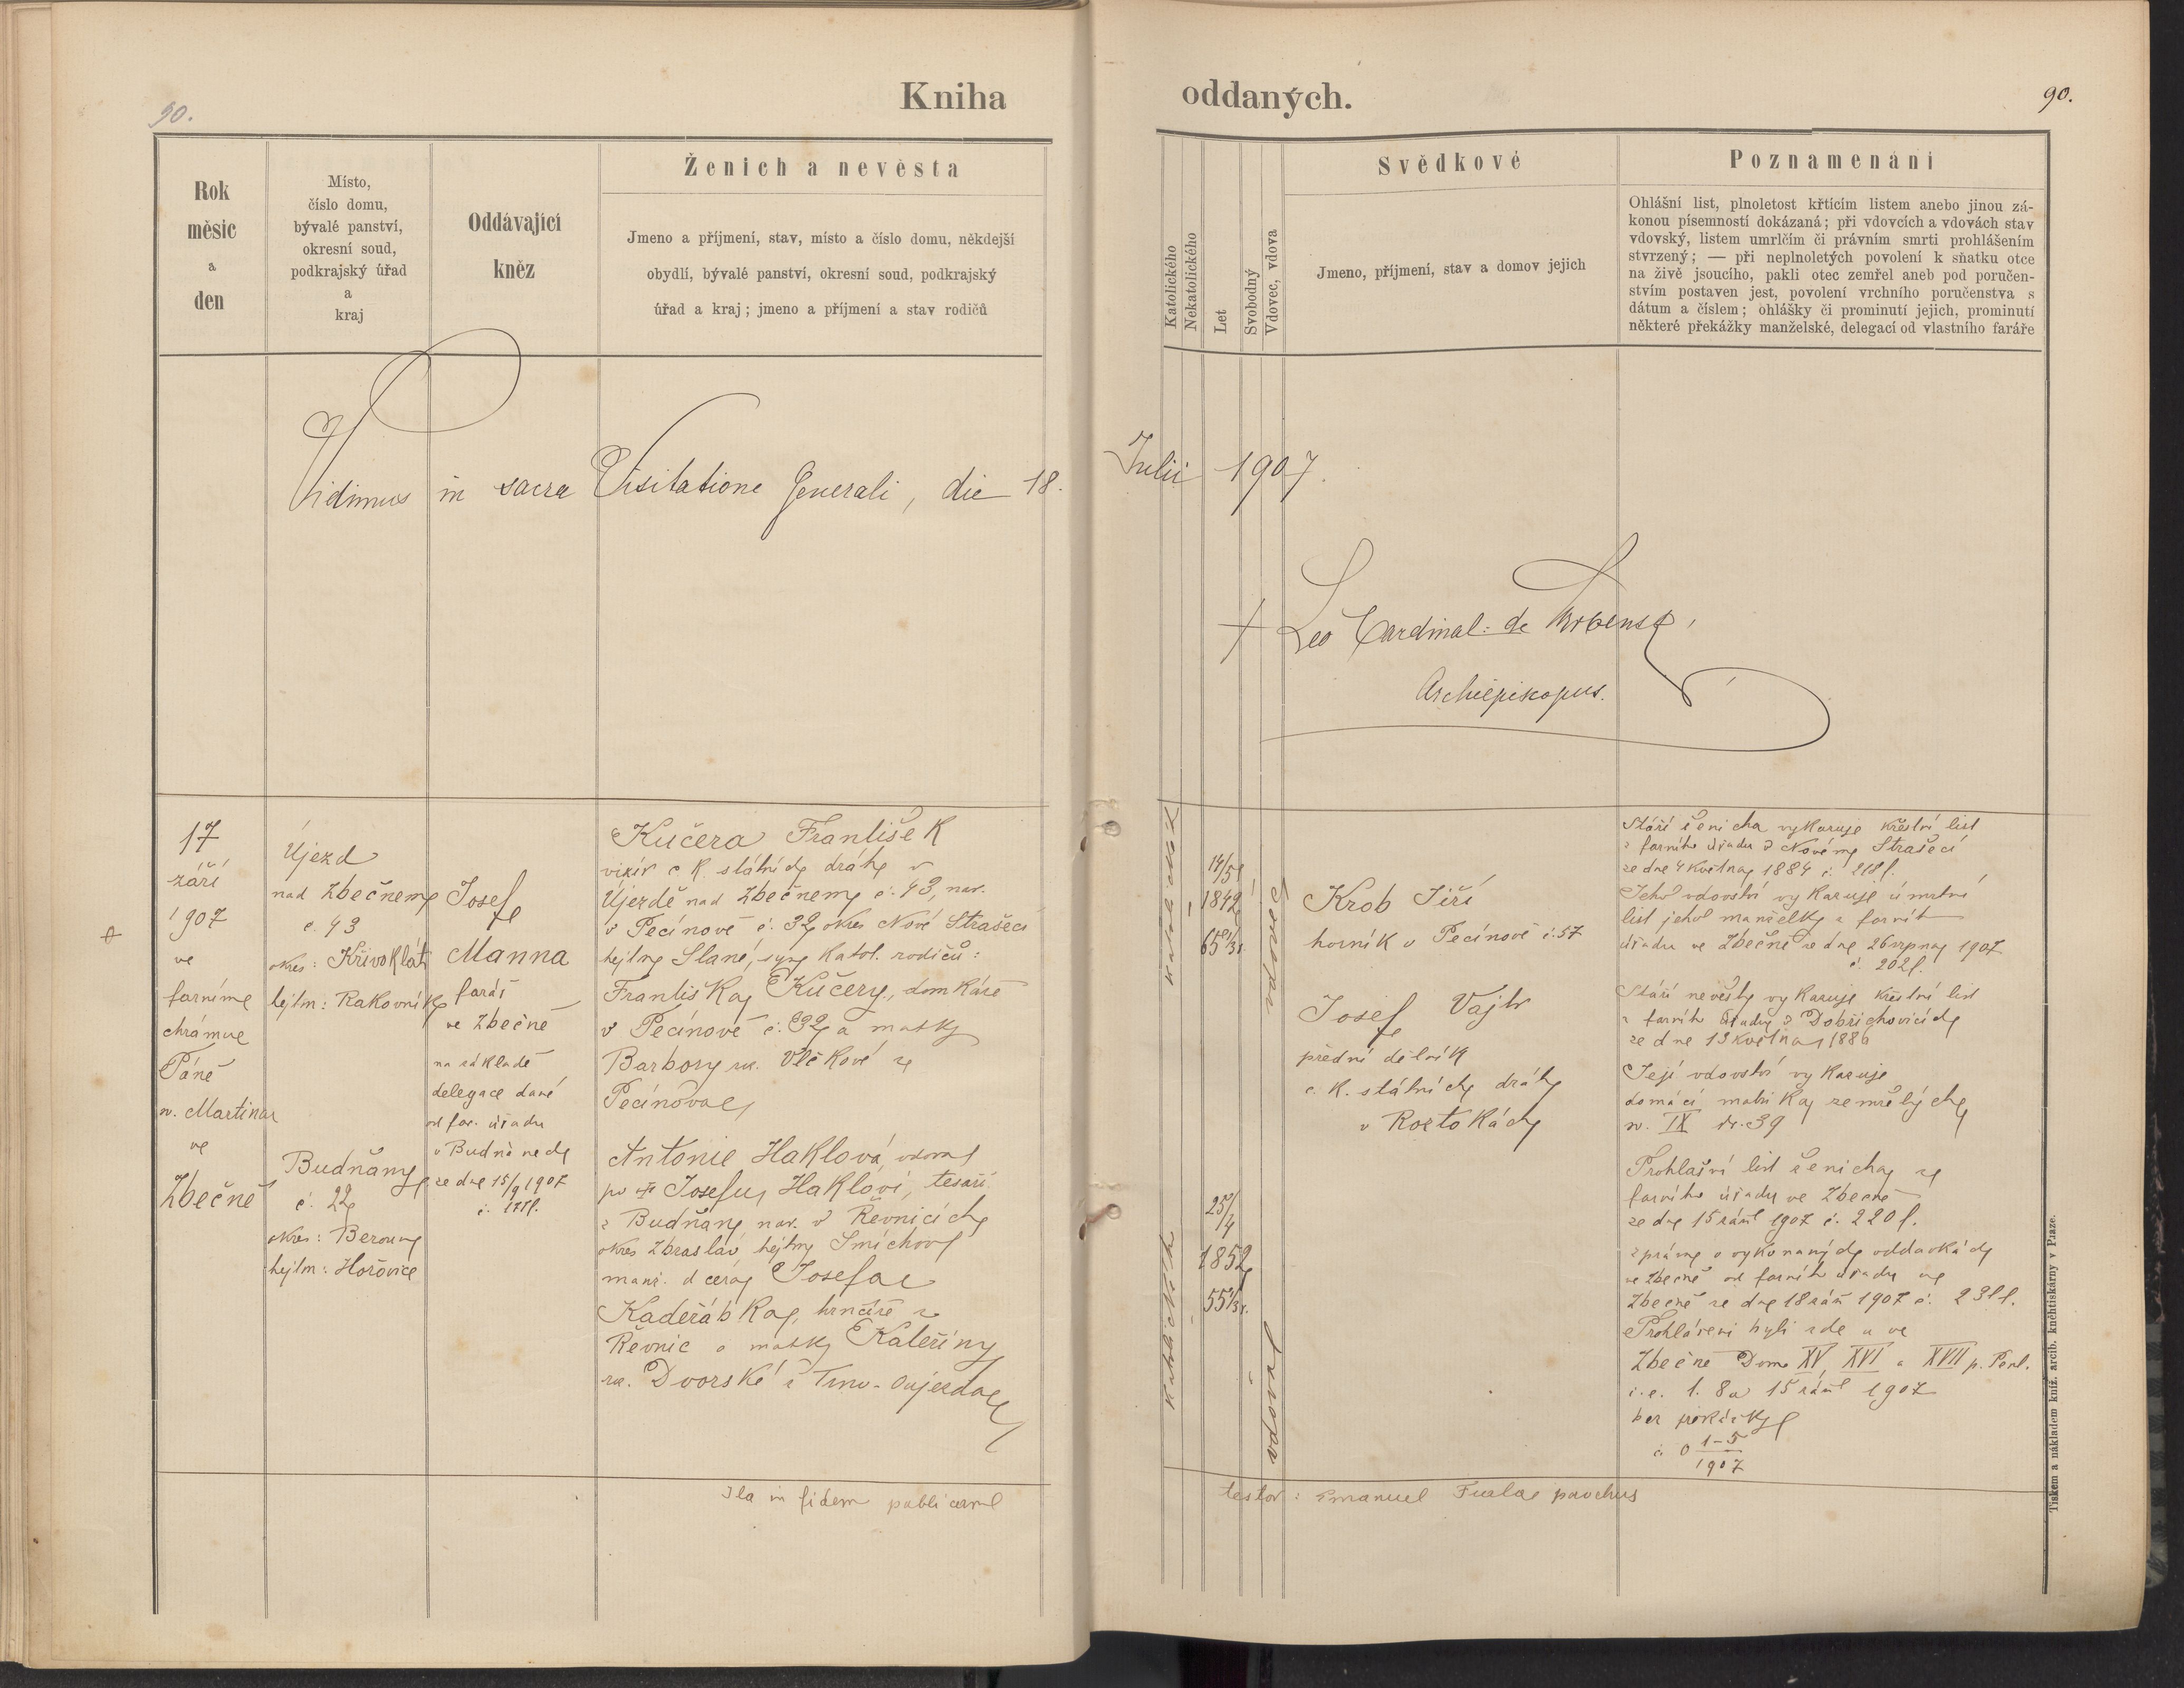 90.
Kniha oddaných.
90.
Rok
měsíc
a
den
Místo,
číslo domu,
bývalé panství,
okresní soud,
podkrajský úřad
a
kraj
Oddávající
kněz
Ženich a nevěsta
Jmeno a příjmení, stav, místo a číslo domu, někdejší
obydlí, bývalé panství, okresní soud, podkrajský
úřad a kraj; jmeno a příjmení a stav rodičů
Katolického
Nekatolického
Let
Svobodný
Vdovec, vdova
Svědkové
Jmeno, příjmení, stav a domov jejich
Poznamenání
Ohlášní list, plnoletost křtícím listem anebo jinou zá-
konou písemností dokázaná; při vdovcích a vdovách stav
vdovský, listem umrlčím či právním smrti prohlášením
stvrzený; — při neplnoletých povolení k sňatku otce
na živě jsoucího, pakli otec zemřel aneb pod poručen-
stvím postaven jest, povolení vrchního poručenstva s
dátum a číslem; ohlášky či prominutí jejich, prominutí
některé překážky manželské, delegací od vlastního faráře
Vidimus in sacra Visitatione Generali, die 18. Julii 1907.
† Leo Cardinal: de Skrbensky,
Archiepiskopus.
17
září
1907
ve
farním
chrámu
Páně
sv. Martina
ve
Zbečně
Újezd
nad Zbečnem
č. 43
okres: Křivoklát
hejtm: Rakovník
Budňany
č. 22
okres: Beroun
hejtm: Hořovice
Josef
Manna
farář
ve Zbečně
na základě
delegace dané
od far. úřadu
v Budňanech
ze dne 15/9 1907
Kučera František
vixír c. k. státních drah v
Újezdě nad Zbečnem č. 43, nar.
v Pecínově č. 32 okres Nové Strašecí
hejtm Slané, syn katol. rodičů:
Františka Kučery, domkáře
v Pecínově č. 32 a matky
Barbory roz. Vlčkové z
Pecínova
Antonie Haklová, vdova
po † Josefu Haklovi, tesaři
z Budňan nar. v Řevnicích
okres Zbraslav hejtm Smíchov
manž. dcera Josefa
Kadeřábka, hrnčíře z
Řevnic a matky Kateřiny
roz. Dvorské z Trno-Oujezda
katolické
14/5
1842
65
vdovec
katolické
25/4
1852
55
vdova
Krob Jiří
horník v Pecínově č. 57
Josef Vajtr
přední dělník
c. k. státních drah
v Roztokách
Stáří ženicha vykazuje křestní list
z farního úřadu v Novém Strašecí
ze dne 4 května 1884 č. 218.
Jeho vdovství vykazuje úmrtní
list jeho manželky z farního
úřadu ve Zbečně ze dne 26 srpna 1907
č. 202.
Stáří nevěsty vykazuje křestní list
z farního úřadu v Dobřichovicích
ze dne 13 května 1886
Její vdovství vykazuje
domácí matrika zemřelých
sv. IX str. 39
Prohlašní list ženicha ze
farního úřadu ve Zbečně
ze dne 15 září 1907 č. 220.
zpráva o vykonaných oddavkách
ve Zbečně od farního úřadu ve
Zbečně ze dne 18 září 1907 č. 231.
Prohlášeni byli zde a ve
Zbečně Dom XV, XVI a XVII p. Pent.
i. e. 1. 8 a 15 září 1907
bez překážky
č. 0 1-5
1907
Ita in fidem publicam testor: Emanuel parochus
Tiskem a nákladem kníž. arcib. knihtiskárny v Praze.